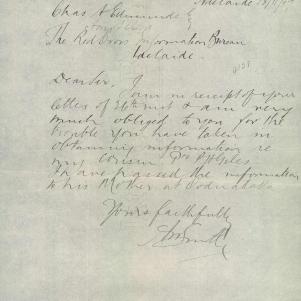 Adelaide
Chas A Edmunds
The Red Cross Information Bureau
Adelaide.
Dear Sir, I
am in receipt of your
letter of 26th inst & am very
much obliged to you for the
trouble you have taken in
obtaining information re
my cousin
I have passed the information
to his Mother at Oodnadatta
Yours faithfully